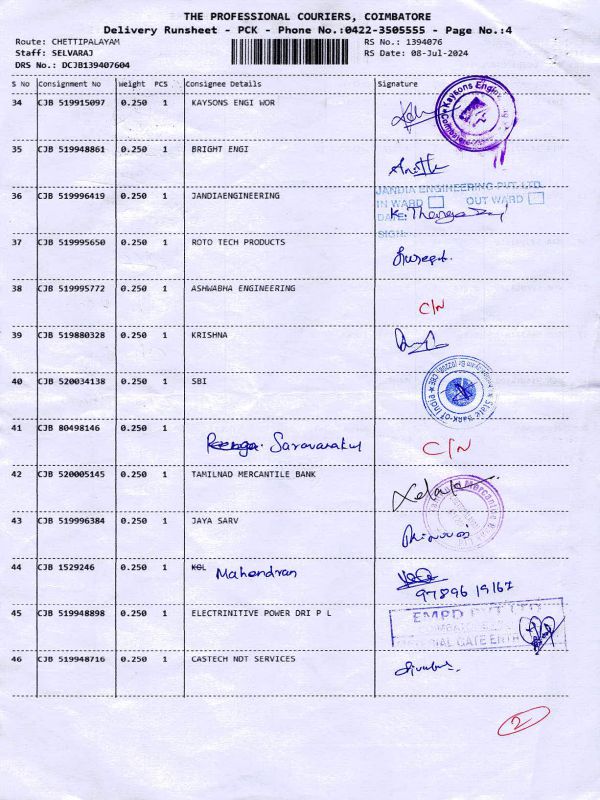 THE PROFESSIONAL COURIERS, COIMBATORE
Delivery Runsheet - PCK - Phone No.:0422-3505555 - Page No.:4
Route: CHETTIPALAYAM RS No.: 1394076
Staff: SELVARAJ RS Date: 08-Jul-2024
DRS No.: DCJB139407604
S No Consignment No Weight PCS Consignee Details Signature
34 CJB 519915097 0.250 1 KAYSONS ENGI WOR
Kaysons Engine
35 CJB 519948861 0.250 1 BRIGHT ENGI
36 CJB 519996419 0.250 1 JANDIAENGINEERING
JANDIA ENGINEERING PVT. LTD.
IN WARD OUT WARD
DATE:
SIGN:
37 CJB 519995650 0.250 1 ROTO TECH PRODUCTS
38 CJB 519995772 0.250 1 ASHWABHA ENGINEERING
C/N
39 CJB 519880328 0.250 1 KRISHNA
40 CJB 520034138 0.250 1 SBI
State Bank of India
41 CJB 80498146 0.250 1
C/N
42 CJB 520005145 0.250 1 TAMILNAD MERCANTILE BANK
Mercantile
43 CJB 519996384 0.250 1 JAYA SARV
44 CJB 1529246 0.250 1 KGL Mahendran
97896 19167
45 CJB 519948898 0.250 1 ELECTRINITIVE POWER DRI P L
EMPD PVT LTD
GATE ENTR
46 CJB 519948716 0.250 1 CASTECH NDT SERVICES
2